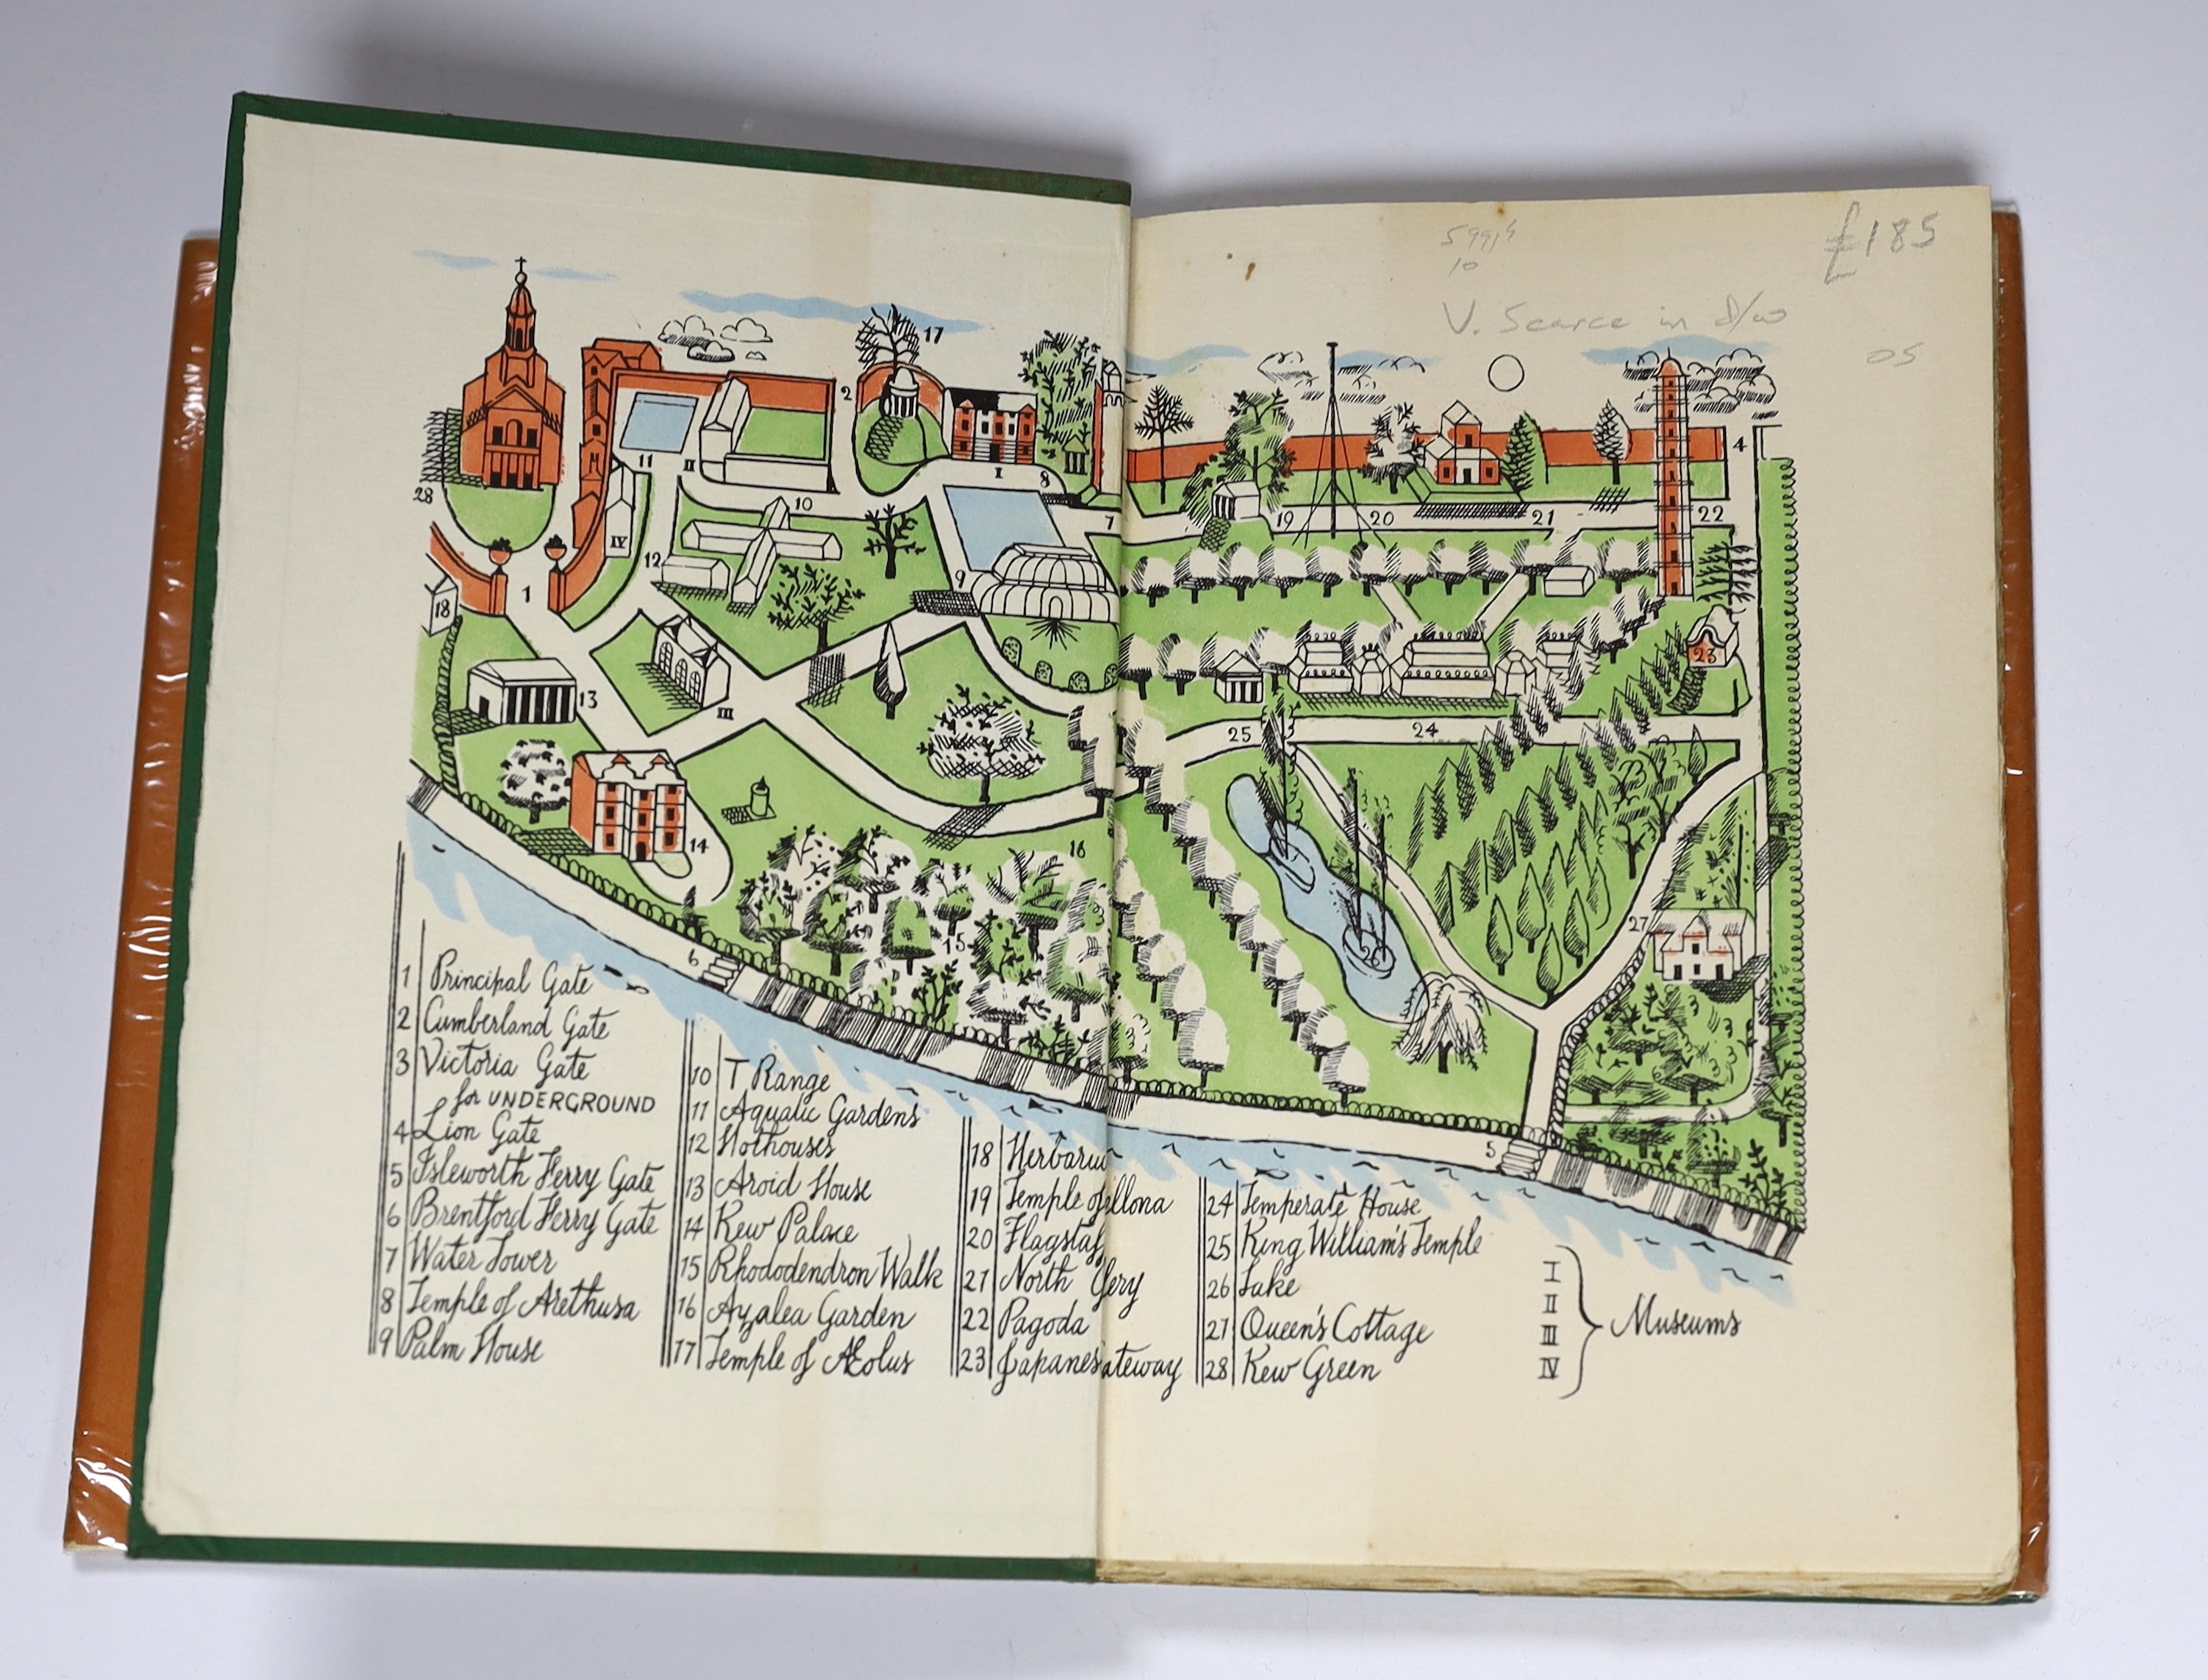 £185
V. Scarce in d/w
05
10
17
2
11
II
I
8
4
28
10
7
19
20
21
22
IV
12
9
1
18
23
13
III
25
24
14
16
27
15
6
26
5
1 Principal Gate
2 Cumberland Gate
3 Victoria Gate
for UNDERGROUND
4 Lion Gate
5 Isleworth Ferry Gate
6 Brentford Ferry Gate
7 Water Tower
8 Temple of Arethusa
9 Palm House
10 T Range
11 Aquatic Gardens
12 Hothouses
13 Aroid House
14 Kew Palace
15 Rhododendron Walk
16 Azalea Garden
17 Temple of Æolus
18 Herbariu
19 Temple of llona
20 Flagstaf
21 North lery
22 Pagoda
23 Japanes ateway
24 Temperate House
25 King William's Temple
26 Lake
27 Queen's Cottage
28 Kew Green
I
II
III
IV
Museums